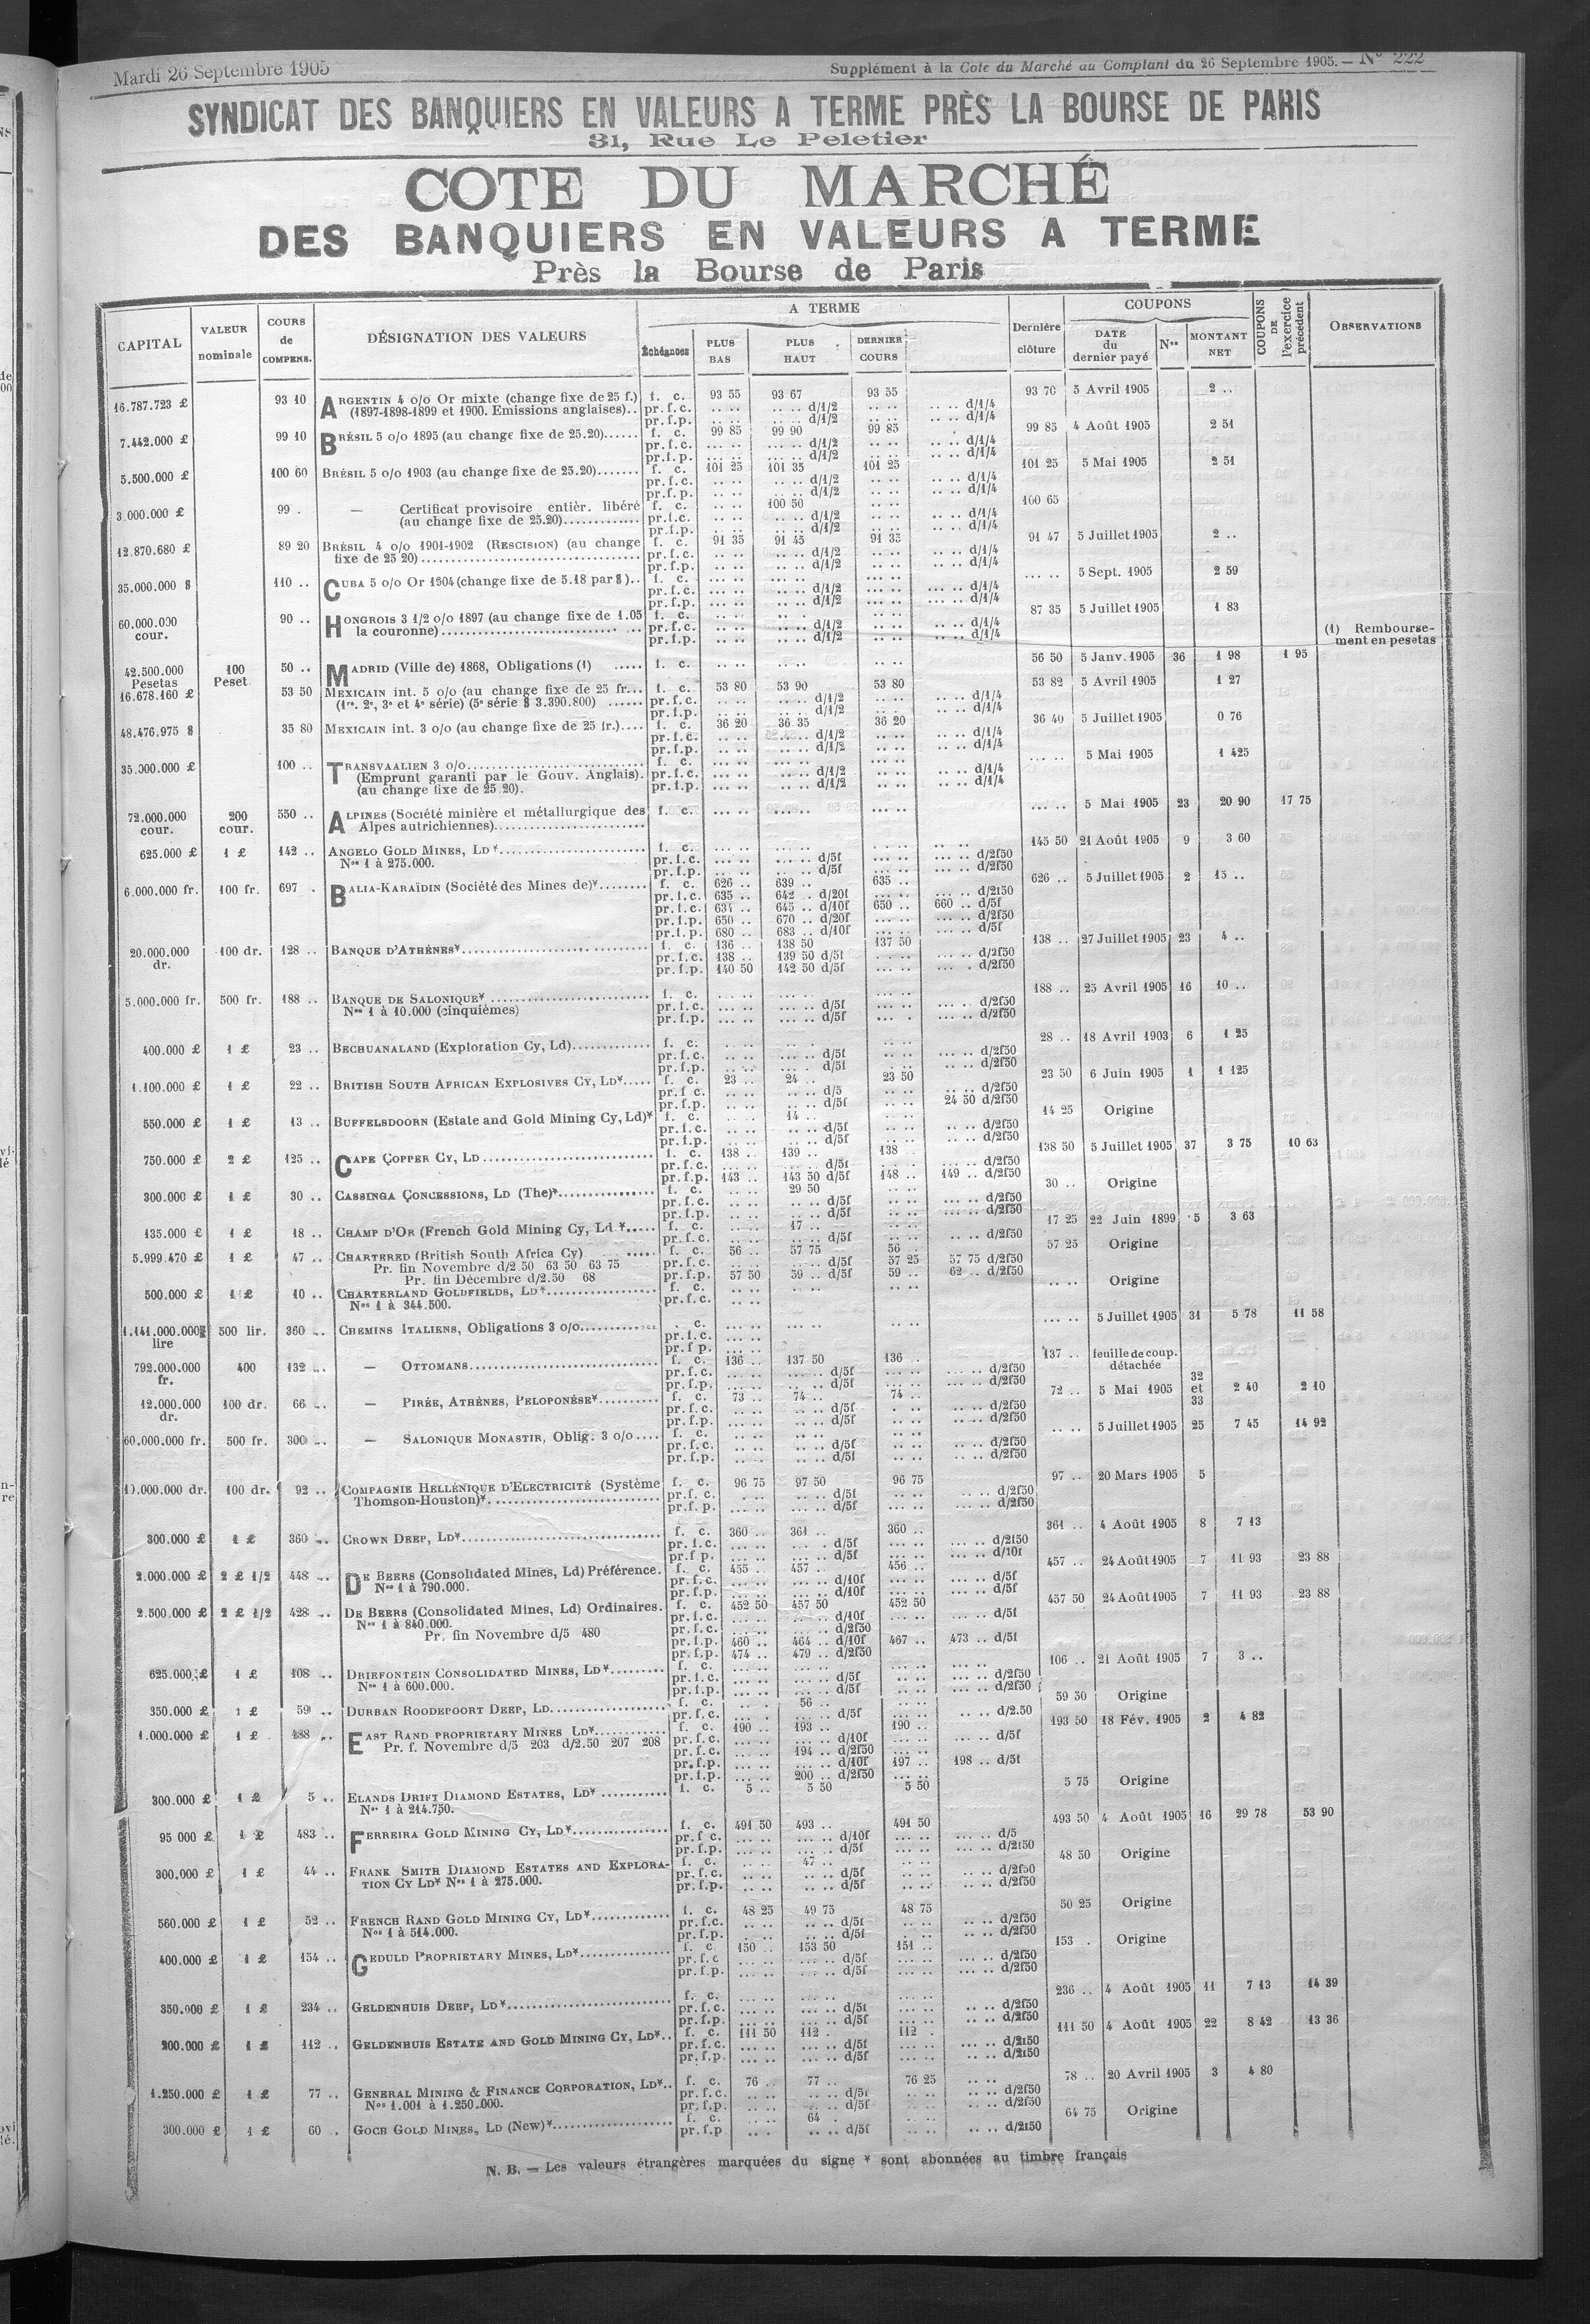 Mardi 26 Septembre 1905
Supplément à la Cote du Marché au Comptant du 26 Septembre 1905. — N° 222
SYNDICAT DES BANQUIERS EN VALEURS A TERME PRÈS LA BOURSE DE PARIS
31, Rue Le Peletier
COTE DU MARCHÉ
DES BANQUIERS EN VALEURS A TERME
Près la Bourse de Paris
CAPITAL VALEUR nominale COURS de COMPENS. DÉSIGNATION DES VALEURS A TERME Échéances PLUS BAS PLUS HAUT DERNIER COURS Dernière clôture COUPONS DATE du dernier payé Nos MONTANT NET COUPONS DE l'exercice précédent OBSERVATIONS
16.787.723 £ 93 10 ARGENTIN 4 o/o Or mixte (change fixe de 25 f.) f. c. 93 55 93 67 93 55 93 70 5 Avril 1905 2 ..
(1897-1898-1899 et 1900. Emissions anglaises).. pr.f.c. .. .. .. .. d/1/2 .. .. .. .. d/1/4
pr.f.p. .. .. .. .. d/1/2 .. .. .. .. d/1/4
7.442.000 £ 99 10 BRÉSIL 5 o/o 1895 (au change fixe de 25.20)...... f. c. 99 85 99 90 99 85 99 85 4 Août 1905 2 51
pr.f.c. ... .. .. .. d/1/2 .. .. .. .. d/1/4
pr.f.p. ... .. .. .. d/1/2 .. .. .. .. d/1/4
5.500.000 £ 100 60 BRÉSIL 5 o/o 1903 (au change fixe de 25.20)....... f. c. 101 25 101 35 101 25 101 25 5 Mai 1905 2 51
pr.f.c. .. .. .. .. d/1/2 .. .. .. .. d/1/4
pr.f.p. .. .. .. .. d/1/2 .. .. .. .. d/1/4
3.000.000 £ 99 . — Certificat provisoire entièr. libéré f. c. .. .. 100 50 100 65
(au change fixe de 25.20)............. pr.f.c. .. .. .. .. d/1/2 .. .. .. .. d/1/4
pr.f.p. .. .. .. .. d/1/2 .. .. .. .. d/1/4
12.870.680 £ 89 20 BRÉSIL 4 o/o 1901-1902 (RESCISION) (au change f. c. 91 35 91 45 91 35 91 47 5 Juillet 1905 2 ..
fixe de 25 20)..................... pr.f.c. .. .. .. .. d/1/2 .. .. .. .. d/1/4
pr.f.p. .. .. .. .. d/1/2 .. .. .. .. d/1/4
35.000.000 $ 110 .. CUBA 5 o/o Or 1904 (change fixe de 5.18 par $).. f. c. ... .. ... .. ... .. ... .. 5 Sept. 1905 2 59
pr.f.c. ... .. ... .. d/1/2 ... .. ... .. d/1/4
pr.f.p. ... .. ... .. d/1/2 ... .. ... .. d/1/4
60.000.000 cour. 90 .. HONGROIS 3 1/2 o/o 1897 (au change fixe de 1.05 f. c. .. .. .. .. .. .. 87 35 5 Juillet 1905 1 83
la couronne)..................... pr.f.c. .. .. .. .. d/1/2 .. .. .. .. d/1/4
pr.f.p. .. .. .. .. d/1/2 .. .. .. .. d/1/4
(1) Rembourse-
ment en pesetas
42.500.000 Pesetas 100 Peset. 50 .. MADRID (Ville de) 1868, Obligations (1) ..... f. c. .. .. .. .. .. .. 56 50 5 Janv. 1905 36 1 98 1 95
16.678.160 £ 53 50 MEXICAIN int. 5 o/o (au change fixe de 25 fr... f. c. 53 80 53 90 53 80 53 82 5 Avril 1905 1 27
(1re. 2e, 3e et 4e série) (5e série $ 3.390.800) ...... pr.f.c. .. .. .. .. d/1/2 .. .. .. .. d/1/4
pr.f.p. .. .. .. .. d/1/2 .. .. .. .. d/1/4
48.476.975 $ 35 80 MEXICAIN int. 3 o/o (au change fixe de 25 fr.).... f. c. 36 20 36 35 36 20 36 40 5 Juillet 1905 0 76
pr.f.c. .. .. .. .. d/1/2 .. .. .. .. d/1/4
pr.f.p. .. .. .. .. d/1/2 .. .. .. .. d/1/4
35.000.000 £ 100 .. TRANSVAALIEN 3 o/o..................... f. c. ... .. ... .. .. .. ... .. 5 Mai 1905 1 425
(Emprunt garanti par le Gouv. Anglais). pr.f.c. ... .. .. .. d/1/2 .. .. .. .. d/1/4
(au change fixe de 25 20). pr.f.p. ... .. .. .. d/1/2 .. .. .. .. d/1/4
72.000.000 cour. 200 cour. 550 .. ALPINES (Société minière et métallurgique des f. c. ... .. ... .. ... .. ... .. 5 Mai 1905 23 20 90 17 75
Alpes autrichiennes).....................
625.000 £ 1 £ 142 .. ANGELO GOLD MINES, LD*..................... f. c. ... .. ... .. ... .. 145 50 21 Août 1905 9 3 60
Nos 1 à 275.000. pr.f.c. ... .. ... .. d/5f ... .. ... .. d/2f50
pr.f.p. ... .. ... .. d/5f ... .. ... .. d/2f50
6.000.000 fr. 100 fr. 697 . BALIA-KARAÏDIN (Société des Mines de)*........ f. c. 626 .. 639 .. 635 .. 626 .. 5 Juillet 1905 2 15 ..
pr.f.c. 635 .. 642 . d/20f ... .. ... .. d/2f50
pr.f.c. 637 .. 645 .. d/10f 650 .. 660 .. d/5f
pr.f.p. 650 .. 670 .. d/20f ... .. d/2f50
pr.f.p. 680 .. 683 .. d/10f ... .. d/5f
20.000.000 dr. 100 dr. 128 .. BANQUE D'ATHÈNES*..................... f. c. 136 .. 138 50 137 50 138 .. 27 Juillet 1905 23 4 ..
pr.f.c. 138 .. 139 50 d/5f ... .. ... .. d/2f50
pr.f.p. 140 50 142 50 d/5f ... .. ... . d/2f50
5.000.000 fr. 500 fr. 188 .. BANQUE DE SALONIQUE* ..................... f. c. ... .. ... .. ... .. 188 .. 25 Avril 1905 16 10 ..
Nos 1 à 10.000 (cinquièmes) pr.f.c. ... .. ... .. d/5f ... .. ... .. d/2f50
pr.f.p. ... .. ... .. d/5f ... . ... .. d/2f50
400.000 £ 1 £ 23 .. BECHUANALAND (Exploration Cy, Ld)............. f. c. .. .. .. .. .. .. 28 .. 18 Avril 1903 6 1 25
pr.f.c. .. .. .. .. d/5f .. .. ... .. d/2f50
pr.f.p. .. .. .. . d/5f .. .. .. .. d/2f50
1.100.000 £ 1 £ 22 .. BRITISH SOUTH AFRICAN EXPLOSIVES CY, LD*..... f. c. 23 .. 24 .. 23 50 23 50 6 Juin 1905 1 1 125
pr.f.c. .. .. .. .. d/5 .. .. .. .. d/2f50
pr.f.p. .. .. .. .. d/5f .. .. 24 50 d/2f50
550.000 £ 1 £ 13 .. BUFFELSDOORN (Estate and Gold Mining Cy, Ld)* f. c. .. .. 14 .. .. .. 14 25 Origine
pr.f.c. .. .. .. .. d/5f .. .. .. .. d/2f50
pr.f.p. .. .. .. .. d/5f .. .. .. .. d/2f50
750.000 £ 2 £ 125 .. CAPE COPPER CY, LD..................... f. c. 138 .. 139 .. 138 138 50 5 Juillet 1905 37 3 75 10 63
pr.f.c. ... .. ... .. d/5f ... .. ... .. d/2f50
pr.f.p. 143 .. 143 50 d/5f 148 .. 149 .. d/2f50
300.000 £ 1 £ 30 .. CASSINGA CONCESSIONS, LD (The)*............... f. c. .. .. 29 50 .. .. 30 .. Origine
pr.f.c. .. .. .. .. d/5f .. .. ... .. d/2f50
pr.f.p. .. .. .. .. d/5f .. .. ... .. d/2f50
135.000 £ 1 £ 18 .. CHAMP D'OR (French Gold Mining Cy, Ld *..... f. c. .. .. 17 .. .. .. 17 25 22 Juin 1899 5 3 63
pr.f.c. .. .. .. .. d/5f .. .. .. .. d/2f50
5.999.470 £ 1 £ 47 .. CHARTERED (British South Africa Cy) ..... f. c. 56 .. 57 75 56 .. 57 25 Origine
Pr. fin Novembre d/2 50 63 50 63 75 pr.f.c. .. .. .. .. d/5f 57 25 57 75 d/2f50
Pr. fin Décembre d/2.50 68 pr.f.p. 57 50 59 .. d/5f 59 .. 62 .. d/2f50
500.000 £ 1 £ 10 .. CHARTERLAND GOLDFIELDS, LD*................. f. c. .. .. .. .. .. .. .. .. Origine
Nos 1 à 344.500. pr.f.c. .. ..
1.141.000.000 lire 500 lir. 360 .. CHEMINS ITALIENS, Obligations 3 o/o.......... . c. ... .. ... .. ... .. ... .. 5 Juillet 1905 31 5 78 11 58
pr.f.c. ... ..
pr.f.p. ... ..
792.000.000 fr. 400 132 .. — OTTOMANS..................... f. c. 136 .. 137 50 136 .. 137 .. feuille de coup. détachée
pr.f.c. ... .. ... .. d/5f ... .. ... .. d/2f50
pr.f.p. ... .. ... .. d/5f ... .. ... .. d/2f50
12.000.000 dr. 100 dr. 66 .. — PIRÉE, ATHÈNES, PELOPONÈSE*.......... f. c. 73 .. 74 .. 74 .. 72 .. 5 Mai 1905 32 et 33 2 40 2 10
pr.f.c. .. .. .. .. d/5f . .. .. .. d/2f50
pr.f.p. ... .. .. .. d/5f .. .. .. .. d/2f50
60.000.000 fr. 500 fr. 300 .. — SALONIQUE MONASTIR, Oblig. 3 o/o.... f. c. ... .. ... .. .. .. .. .. 5 Juillet 1905 25 7 45 14 92
pr.f.c. ... .. ... .. d/5f .. .. .. .. d/2f50
pr.f.p. ... .. ... .. d/5f .. .. .. .. d/2f50
10.000.000 dr. 100 dr. 92 .. COMPAGNIE HELLÉNIQUE D'ELECTRICITÉ (Système f. c. 96 75 97 50 96 75 97 .. 20 Mars 1905 5
Thomson-Houston)*..................... pr.f.c. . .. ... .. d/5f .. .. ... .. d/2f50
pr.f.p. ... .. ... .. d/5f .. .. ... .. d/2f50
300.000 £ 1 £ 360 .. CROWN DEEP, LD*..................... f. c. 360 .. 361 .. 360 .. 361 .. 4 Août 1905 8 7 13
pr.f.c. ... .. ... . d/5f ... .. ... .. d/2f50
pr.f.p. ... .. ... .. d/5f ... .. ... .. d/10f
2.000.000 £ 2 £ 1/2 448 .. DE BEERS (Consolidated Mines, Ld) Préférence. f. c. 455 .. 457 .. 456 .. 457 .. 24 Août 1905 7 11 93 23 88
Nos 1 à 790.000. pr.f.c. ... .. ... .. d/10f ... .. ... .. d/5f
pr.f.p. ... .. ... .. d/10f ... .. ... .. d/5f
2.500.000 £ 2 £ 1/2 428 .. DE BEERS (Consolidated Mines, Ld) Ordinaires. f. c. 452 50 457 50 452 50 457 50 24 Août 1905 7 11 93 23 88
Nos 1 à 840.000. pr.f.c. ... .. ... .. d/10f ... .. ... .. d/5f
Pr. fin Novembre d/5 480 pr.f.c. ... .. ... .. d/2f50
pr.f.p. 460 .. 464 .. d/10f 467 .. 473 .. d/5f
pr.f.p. 474 .. 479 .. d/2f50 ... ..
625.000 £ 1 £ 108 .. DRIEFONTEIN CONSOLIDATED MINES, LD*......... f. c. ... .. ... .. ... .. ... .. 106 .. 21 Août 1905 7 3 ..
Nos 1 à 600.000. pr.f.c. ... .. ... .. d/5f ... .. ... .. d/2f50
pr.f.p. ... .. ... .. d/5f ... .. ... .. d/2f50
350.000 £ 1 £ 59 .. DURBAN ROODEPOORT DEEP, LD................. f. c. .. .. 56 .. .. .. 59 50 Origine
pr.f.c. ... . ... .. d/5f ... .. ... .. d/2.50
1.000.000 £ 1 £ 188 .. EAST RAND PROPRIETARY MINES LD*............ f. c. 190 .. 193 .. 190 .. 193 50 18 Fév. 1905 2 4 82
Pr. f. Novembre d/5 203 d/2.50 207 208 pr.f.c. ... .. ... .. d/10f ... .. ... .. d/5f
pr.f.c. ... .. 194 .. d/2f50 ... ..
pr.f.p. ... .. ... .. d/10f 197 .. 198 .. d/5f
pr.f.p. ... .. 200 .. d/2f50 ... ..
300.000 £ 1 £ 5 .. ELANDS DRIFT DIAMOND ESTATES, LD* ........... f. c. 5 .. 5 50 5 50 5 75 Origine
Nos 1 à 214.750.
95 000 £ 1 £ 483 .. FERREIRA GOLD MINING CY, LD*............... f. c. 491 50 493 .. 491 50 493 50 4 Août 1905 16 29 78 53 90
pr.f.c. ... .. ... .. d/10f ... .. ... .. d/5
pr.f.p. ... .. ... .. d/5f ... .. ... .. d/2f50
300.000 £ 1 £ 44 .. FRANK SMITH DIAMOND ESTATES AND EXPLORA- f. c. .. .. 47 .. .. .. 48 50 Origine
TION CY LD* Nos 1 à 275.000. pr.f.c. .. .. .. .. d/5f .. .. .. .. d/2f50
pr.f.p. .. .. .. .. d/5f .. .. .. .. d/2f50
560.000 £ 1 £ 52 .. FRENCH RAND GOLD MINING CY, LD*............. f. c. 48 25 49 75 48 75 50 25 Origine
Nos 1 à 514.000. pr.f.c. .. .. .. .. d/5f .. .. ... .. d/2f50
pr.f.p. .. .. .. .. d/5f .. .. ... .. d/2f50
400.000 £ 1 £ 154 .. GEDULD PROPRIETARY MINES, LD*............... f. c. 150 .. 153 50 151 .. 153 . Origine
pr.f.c ... .. ... .. d/5f ... .. ... .. d/2f50
pr.f.p. ... .. ... .. d/5f ... .. ... .. d/2f50
350.000 £ 1 £ 234 .. GELDENHUIS DEEP, LD*..................... f. c. ... .. ... .. ... .. 236 .. 4 Août 1905 11 7 13 14 39
pr.f.c. ... .. ... .. d/5f ... .. .. .. d/2f50
pr.f.p. ... .. ... .. d/5f ... .. .. .. d/2f50
200.000 £ 1 £ 112 .. GELDENHUIS ESTATE AND GOLD MINING CY, LD*.. f. c. 111 50 112 . 112 . 111 50 4 Août 1905 22 8 42 13 36
pr.f.c. ... .. ... .. d/5f ... .. .. .. d/2f50
pr.f.p. ... .. ... .. d/5f ... .. .. .. d/2f50
1.250.000 £ 1 £ 77 .. GENERAL MINING & FINANCE CORPORATION, LD*.. f. c. 76 .. 77 .. 76 25 .. .. 78 .. 20 Avril 1905 3 4 80
Nos 1.001 à 1.250.000. pr.f.c. .. .. .. .. d/5f .. .. .. .. d/2f50
pr.f.p. .. .. .. .. d/5f .. .. .. .. d/2f50
300.000 £ 1 £ 60 . GOCH GOLD MINES, LD (New)*................. f. c. .. .. 64 . .. .. 64 75 Origine
pr.f.p .. . .. .. d/5f .. .. .. .. d/2f50
N. B. — Les valeurs étrangères marquées du signe * sont abonnées au timbre français